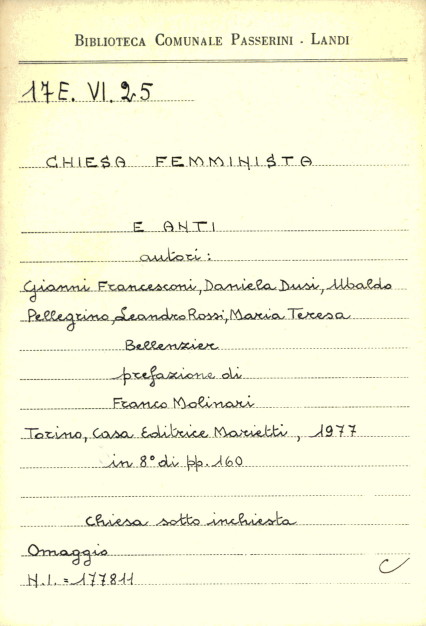 BIBLIOTECA COMUNALE PASSERINI - LANDI
17E. VI. 25
CHIESA FEMMINISTA
E ANTI
autori:
Gianni Francesconi, Daniela Dusi, Ubaldo
Pellegrino, Leandro Rossi, Maria Teresa
Bellenzier
prefazione di
Franco Molinari
Torino, Casa Editrice Marietti, 1977
in 8° di pp. 160
Chiesa sotto inchiesta
Omaggio
N.I. = 177811
C